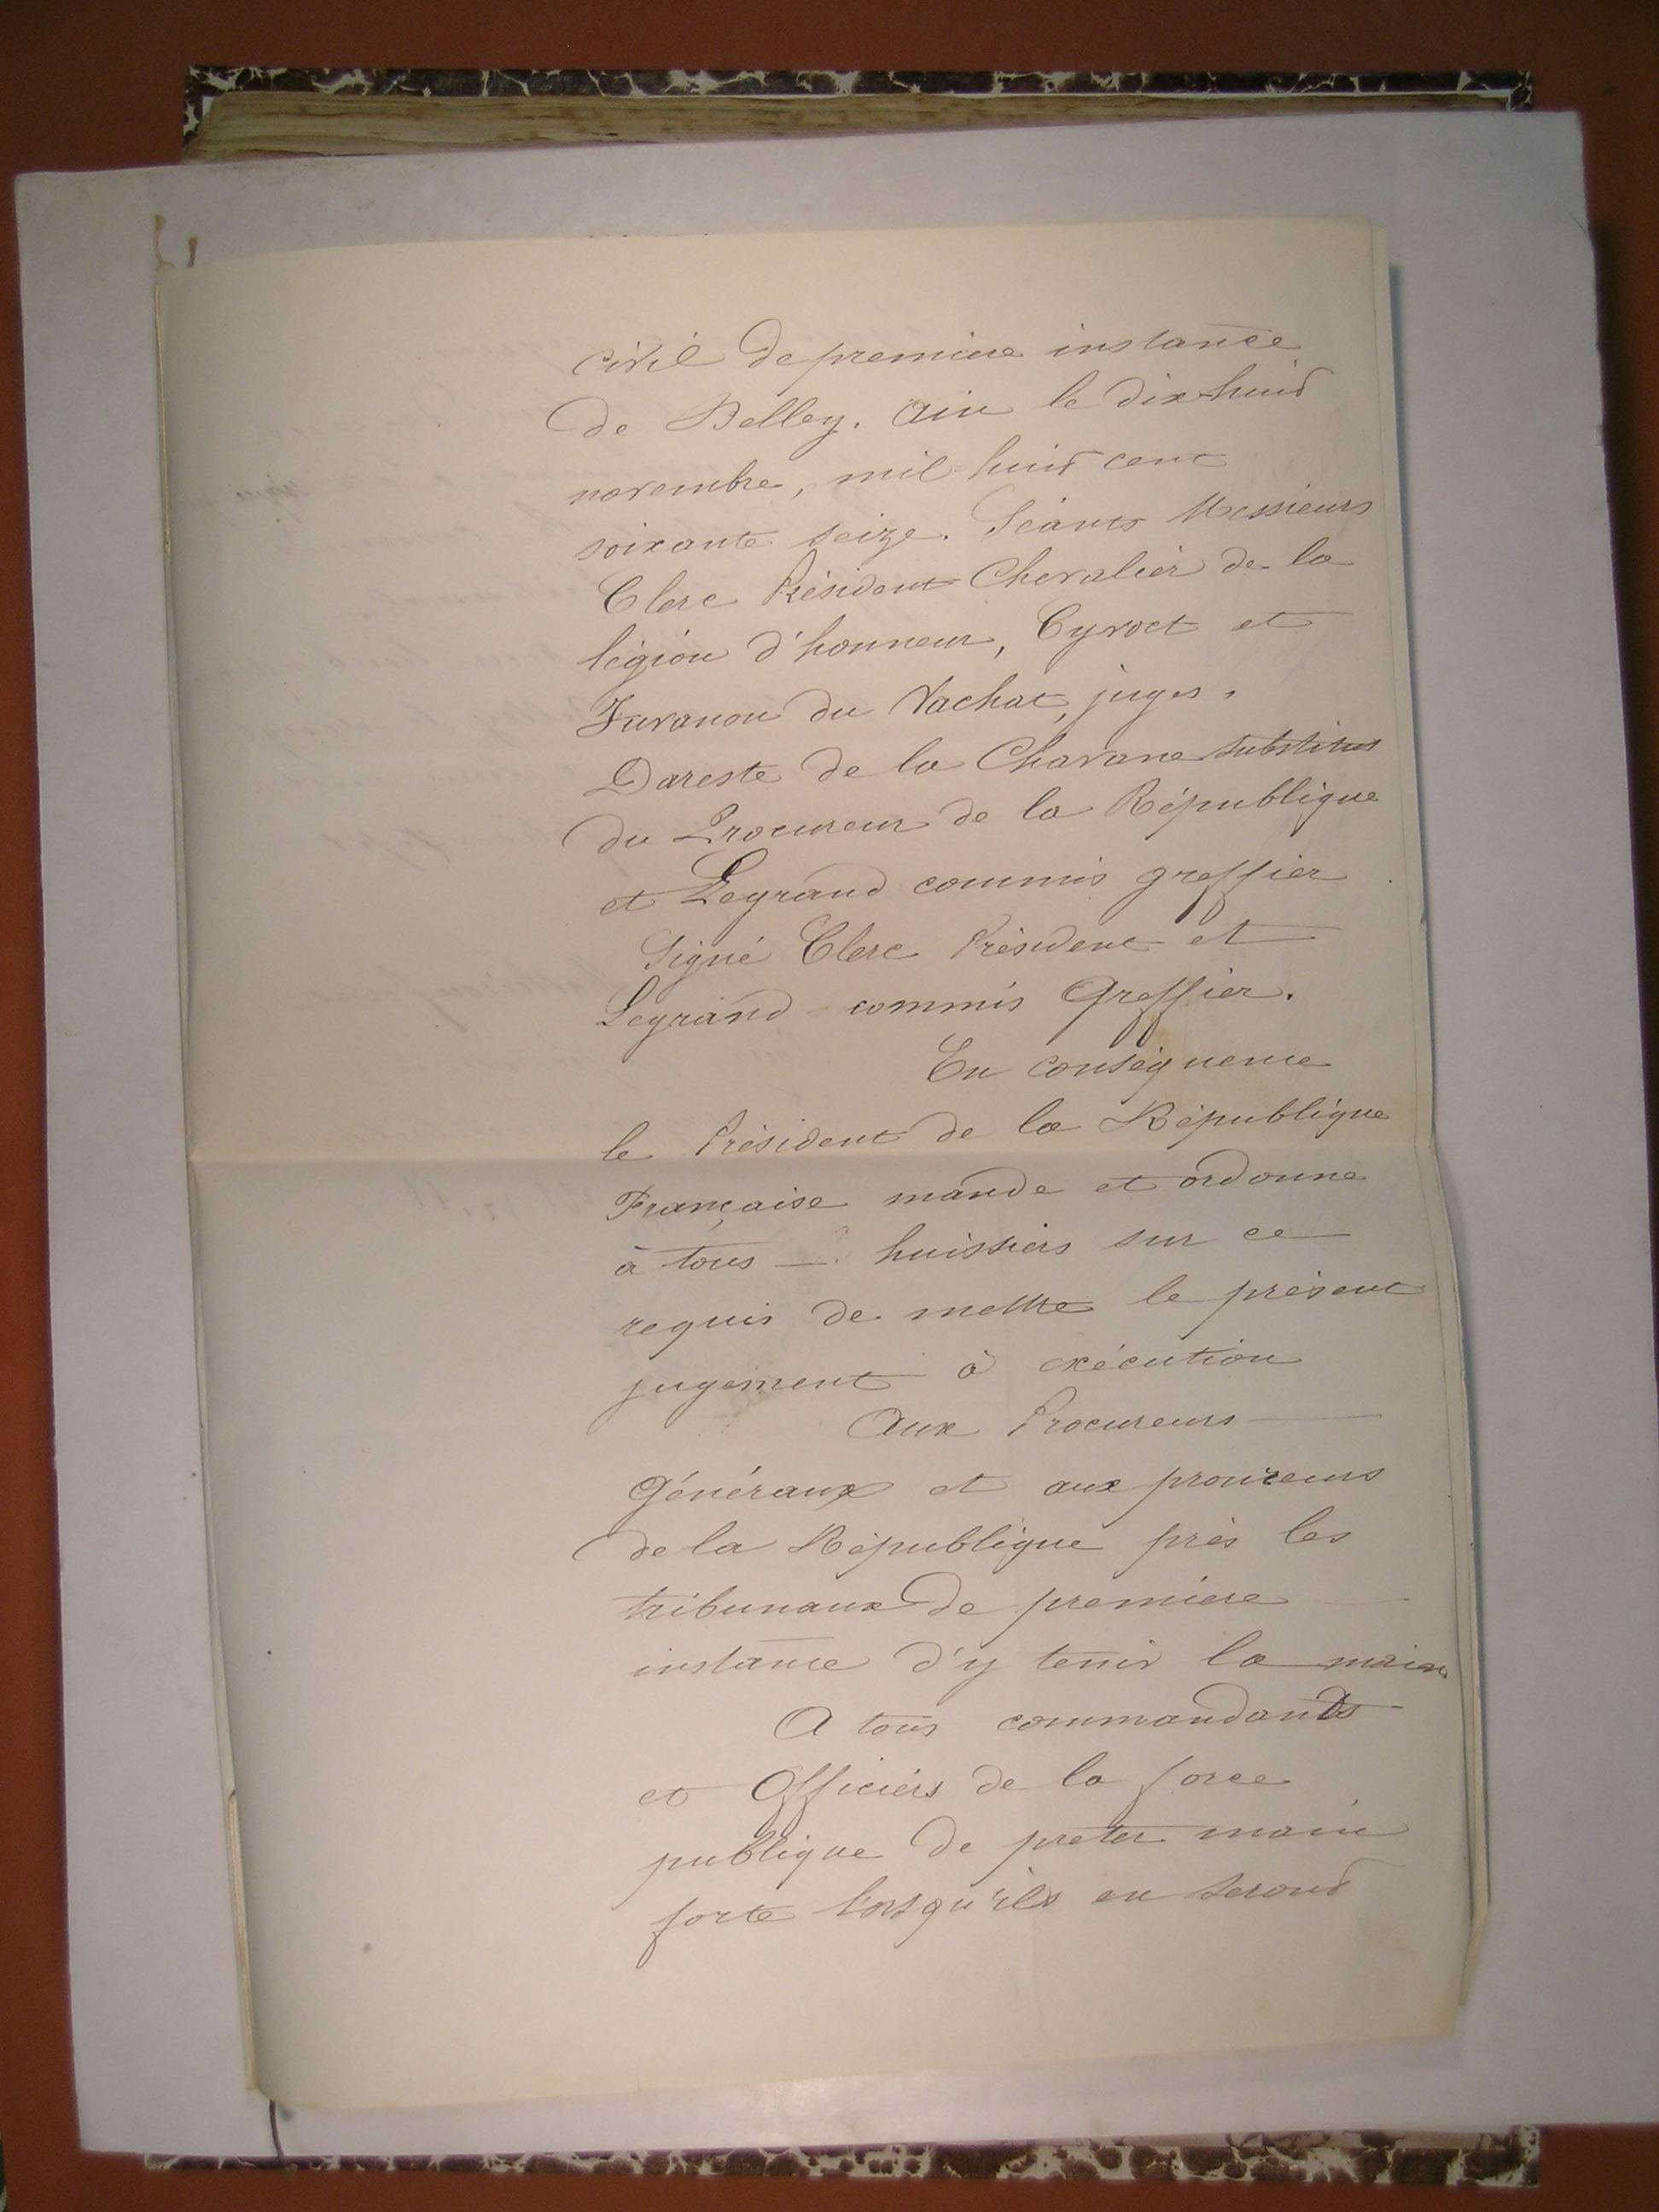 civil de première instance
de Belley. Ain le dix huit
novembre, mil huit cent
soixante seize. Séants Messieurs
Clerc Président Chevalier de la
légion d'honneur, Cyvoct et
Favanon du Vachat, juges,
Dareste de la Chavane substitut
du Procureur de la République
et Legrand commis greffier
Signé Clerc Président et
Legrand commis Greffier.
En conséquence
le Président de la République
Française mande et ordonne
à tous huissiers sur ce
requis de mettre le présent
jugement à exécution
Aux Procureurs
Généraux et aux procureurs
de la République près les
tribunaux de première
instance d'y tenir la main
A tous commandants
et Officiers de la force
publique de preter main
forte lorsqu'ils en seront